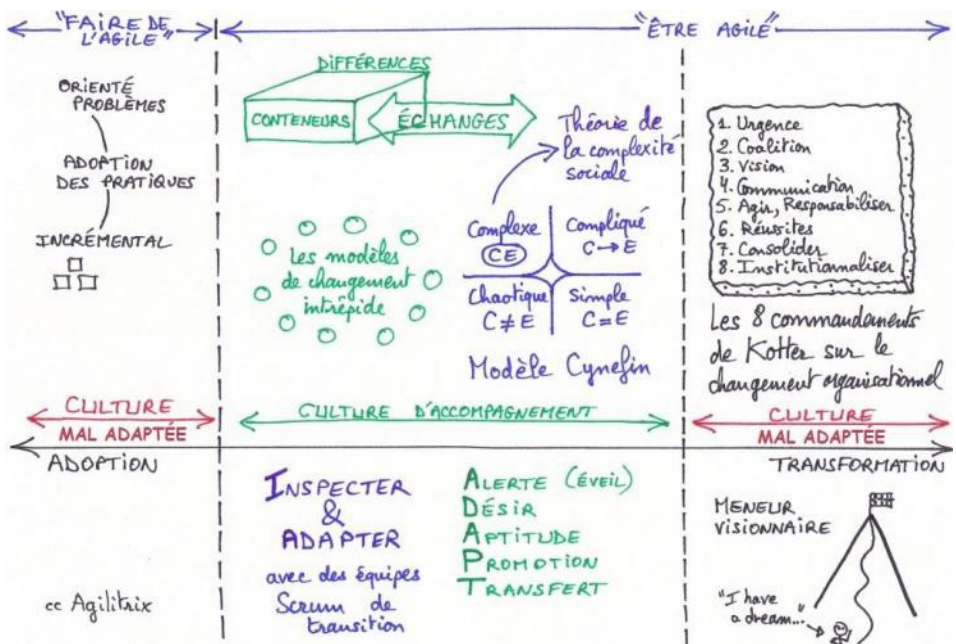 "FAIRE DE
L'AGILE"
"ÊTRE AGILE"
ORIENTÉ
PROBLÈMES
ADOPTION
DES PRATIQUES
INCRÉMENTAL
DIFFÉRENCES
CONTENEURS
ÉCHANGES
Théorie de
la complexité
sociale
Les modèles
de changement
intrépide
Complexe
CE
Compliqué
C→E
Chaotique
C≠E
Simple
C=E
Modèle Cynefin
1. Urgence
2. Coalition
3. Vision
4. Communication
5. Agir, Responsabiliser
6. Réussites
7. Consolider
8. Institutionnaliser
Les 8 commandements
de Kotter sur le
changement organisationnel
CULTURE
MAL ADAPTÉE
CULTURE D'ACCOMPAGNEMENT
CULTURE
MAL ADAPTÉE
ADOPTION
TRANSFORMATION
INSPECTER
&
ADAPTER
avec des équipes
Scrum de
transition
ALERTE (ÉVEIL)
DÉSIR
APTITUDE
PROMOTION
TRANSFERT
MENEUR
VISIONNAIRE
"I have
a dream..."
cc Agilitrix